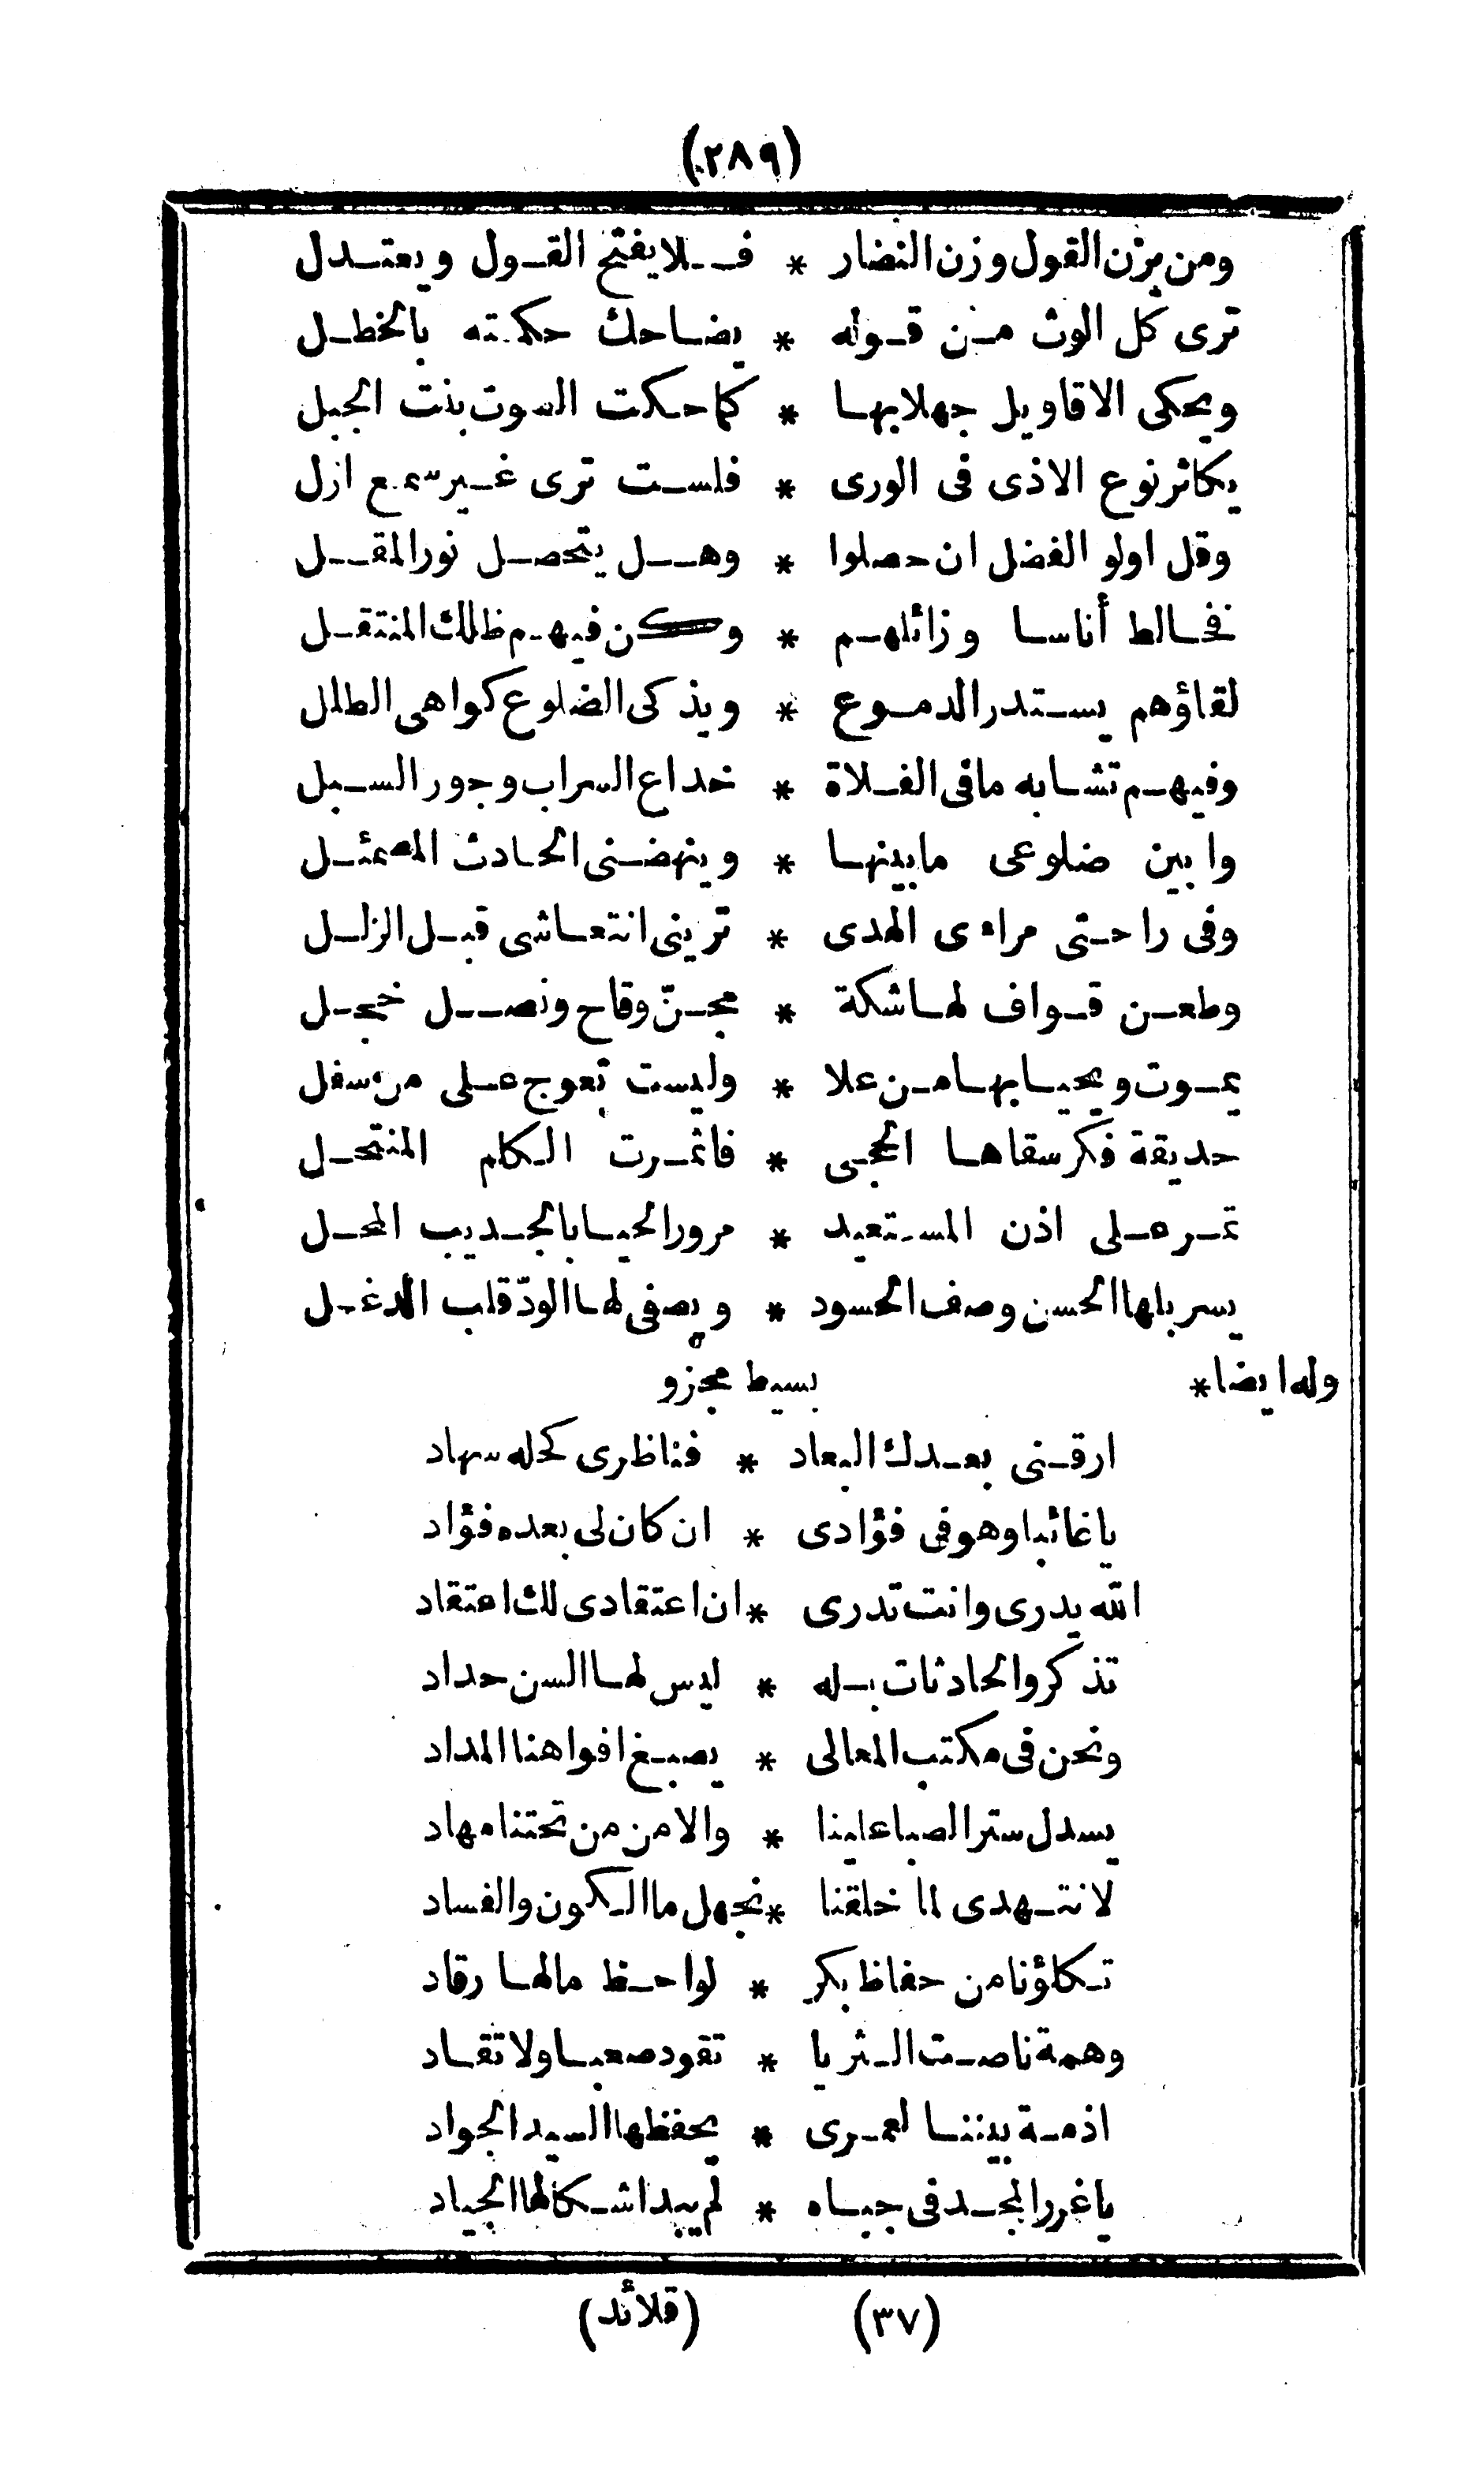 (٢٨٩)
ومن يزن القول وزن النضار * فلا يفتح القول ويعتدل
ترى كل الوث من قوله * يضاحك حكمته بالخطل
ويحكى الاقاويل جهلا بها * كما حكت الصوت بنت الجبل
يكاثر نوع الاذى فى الورى * فلست ترى غير سمع ازل
وقل اولو الفضل ان حصلوا * وهل يتحصل نور المقل
فخالط أناسا وزائلهم * وكن فيهم ظلك المنتقل
لقاؤهم يستدر الدموع * ويذكى الضلوع كواهى الطلل
وفيهم تشابه ما فى الفلاة * خداع السراب وجور السبل
وابين ضلوعى ما بينها * وينهضنى الحادث المصمئل
وفى راحتى مراءى الهدى * ترينى انتعاشى قبل الزلل
وطعن قواف لها شكة * مجنّ وقاح ونصل خجل
يموت ويحيا بها من علا * وليست تعوج على من سفل
حديقة فكر سقاها الحجى * فاثمرت الكلم المنتحل
تمر على اذن المستعيد * مرور الحيا بالجديب المحل
يسربلها الحسن وصف الحسود * ويصفى لها الودّ قلب الدغل
وله ايضا * بسيط مجزو
ارقنى بعدك البعاد * فناظرى كحله سهاد
يا غائبا وهو فى فؤادى * ان كان لى بعده فؤاد
الله يدرى وانت تدرى * ان اعتقادى لك اعتقاد
تذكر والحادثات بله * ليس لها السن حداد
ونحن فى مكتب المعالى * يصبغ افواهنا المداد
يسدل ستر الصبا علينا * والامن من تحتنا مهاد
لا نتهدى لما خلقنا * نجهل ما الكون والفساد
تكلؤنا من حفاظ بكر * لواحظ مالها رقاد
وهمة ناصت الثريا * تقود صعبا ولا تقاد
اذمة بيننا لعمرى * يحفظها السيد الجواد
يا غرر المجد فى جباه * لم يبد اشكالها الجياد
(٣٧) (قلائد)